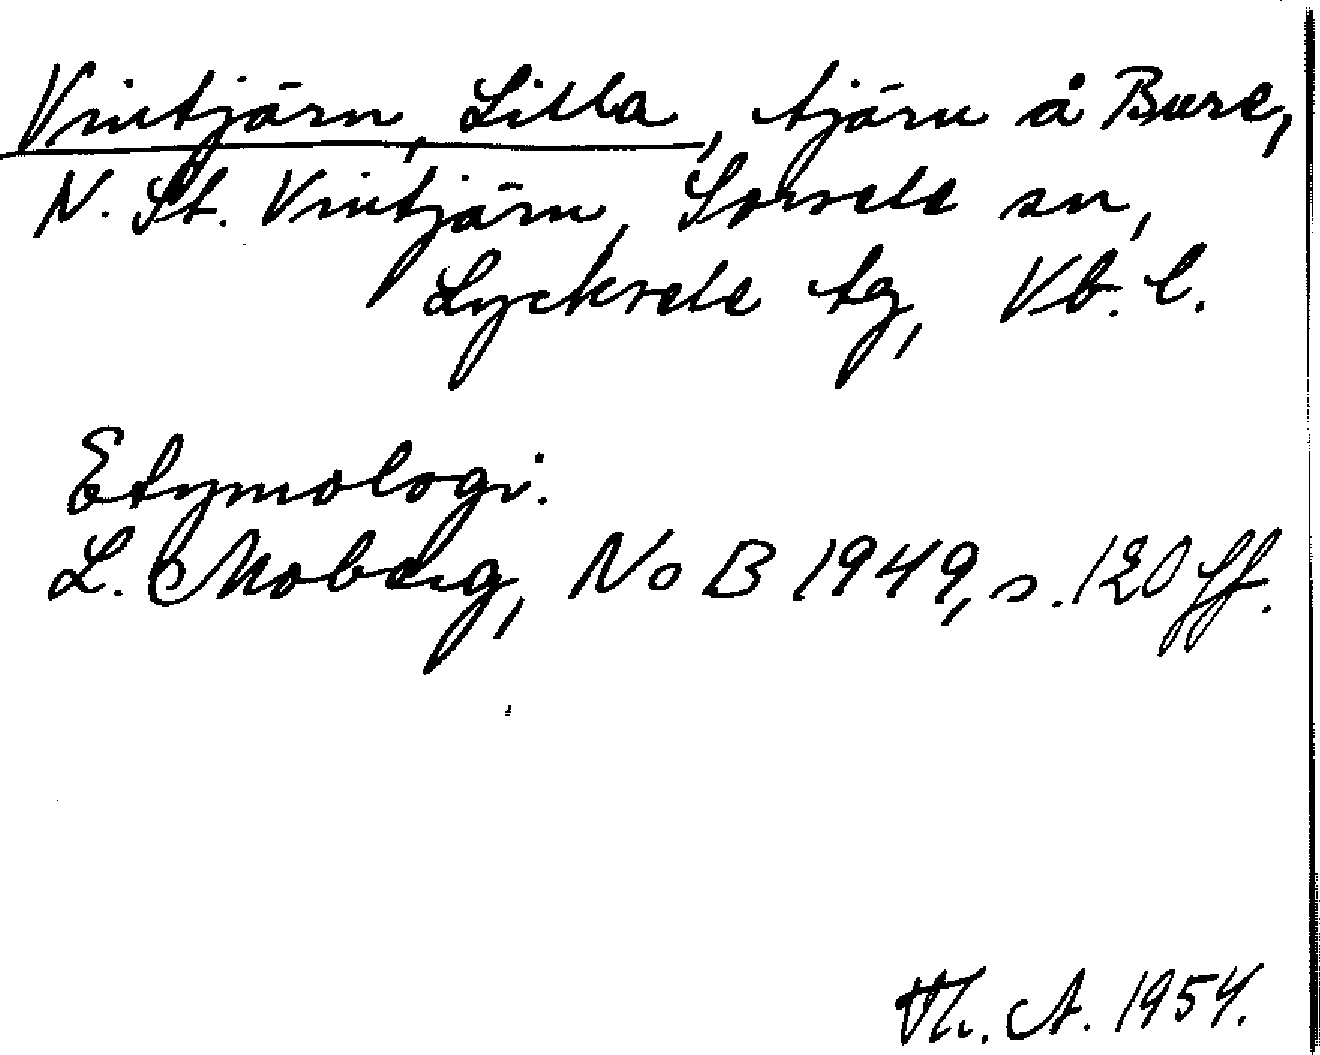 Vintjärn, Lilla, tjärn å Bure,
N. St. Vintjärn, Sorsele sn,
Lycksele tg, Vb. l.
Etymologi.
L. Moberg, NoB 1949, s. 120 ff.
Th. A. 1954.